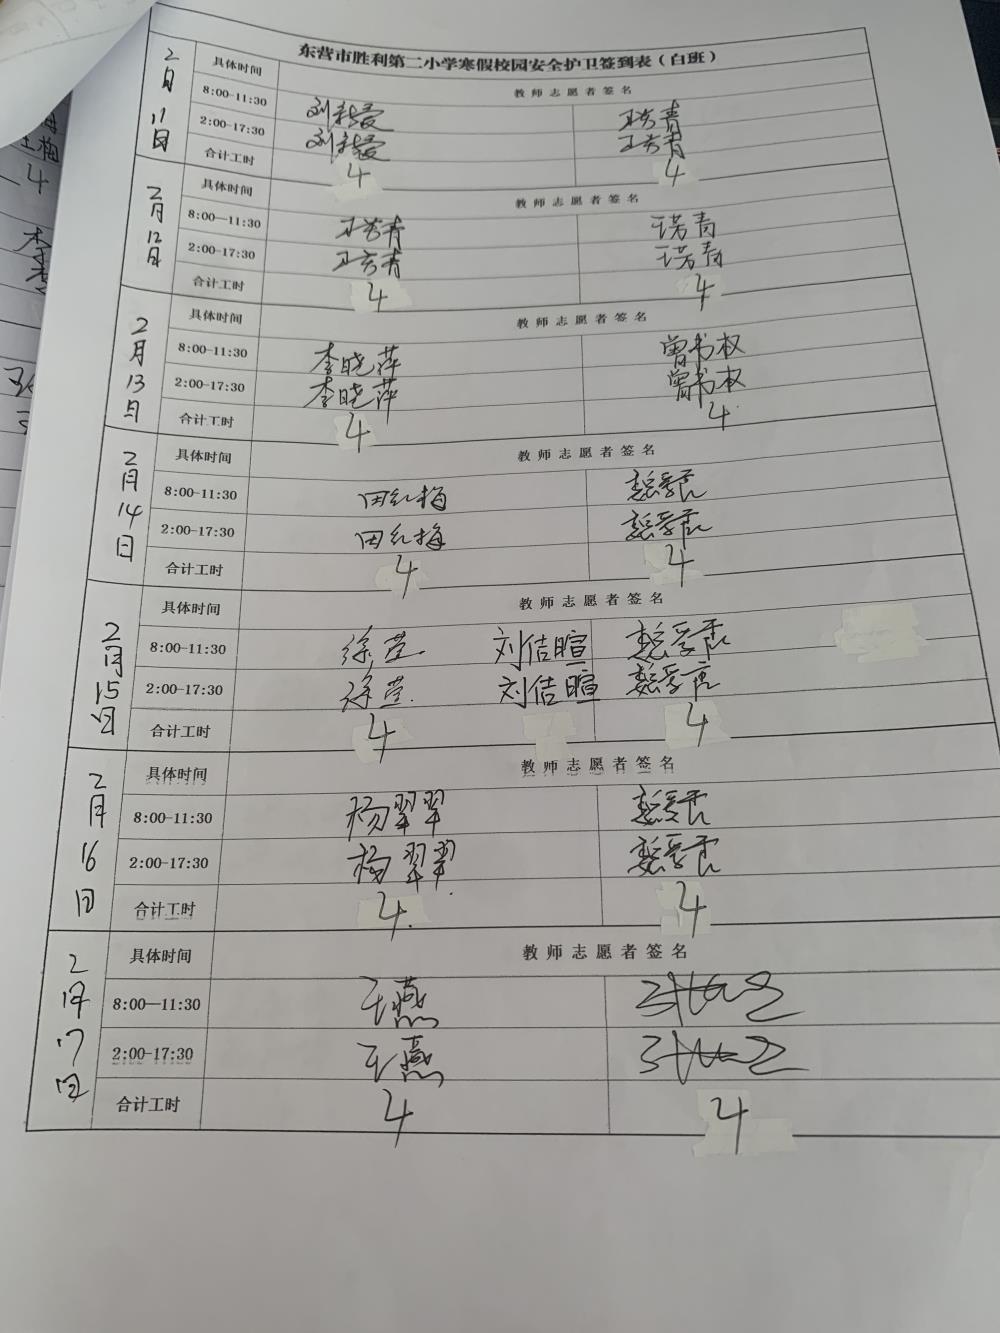 东营市胜利第二小学寒假校园安全护卫签到表（白班）
2月11日
具体时间 教师志愿者签名
8:00-11:30
2:00-17:30
合计工时 4 4
2月12日
具体时间 教师志愿者签名
8:00—11:30
2:00-17:30
合计工时 4 4
2月13日
具体时间 教师志愿者签名
8:00-11:30 李晓萍 曾书权
2:00-17:30 李晓萍 曾书权
合计工时 4 4
2月14日
具体时间 教师志愿者签名
8:00-11:30 田红梅
2:00-17:30 田红梅
合计工时 4 4
2月15日
具体时间 教师志愿者签名
8:00-11:30 徐莹 刘佶暄
2:00-17:30 徐莹 刘佶暄
合计工时 4 4
2月16日
具体时间 教师志愿者签名
8:00-11:30 杨翠翠
2:00-17:30 杨翠翠
合计工时 4 4
2月17日
具体时间 教师志愿者签名
8:00—11:30 王燕
2:00-17:30 王燕
合计工时 4 4